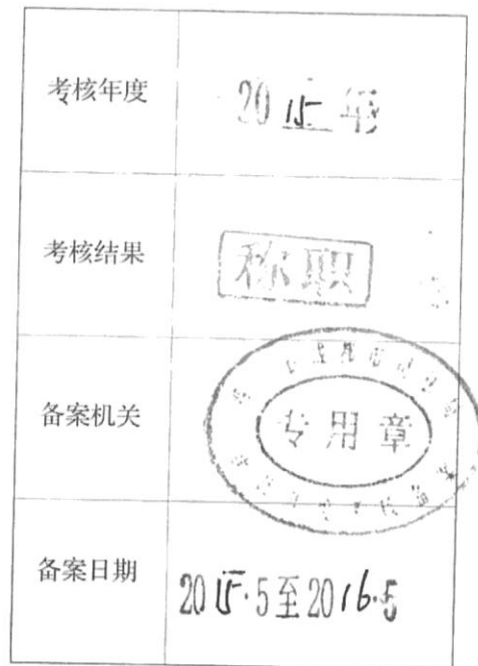 考核年度
2015年
考核结果
称职
备案机关
专用章
备案日期
2015.5至2016.5